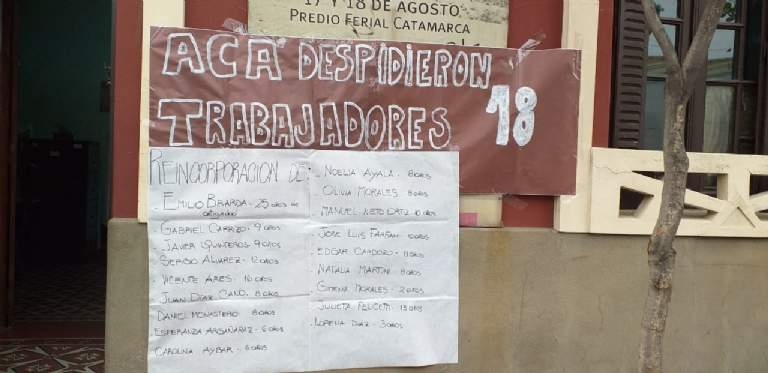 17 Y 18 DE AGOSTO
PREDIO FERIAL CATAMARCA
ACA DESPIDIERON
TRABAJADORES 18
REINCORPORACION DE:
- EMILIO BRARDA - 25 años de
- GABRIEL CARRIZO 9 años
- JAVIER QUINTEROS 9 años
- SERGIO ALVAREZ - 12 años
- VICENTE ARES - 10 años
- JUAN DIAZ CANO. 8 años
DANIEL MONASTERO. 8 años
ESPERANZA ARGAÑARAZ - 6 años
CAROLINA AYBAR - 6 años
- NOELIA AYALA - 8 años
- OLIVIA MORALES 8 años
- MANUEL NIETO 10 años
- JOSE LUIS FARFAN 10 años
- EDGAR CARDOZO - 11 años
- NATALIA MARTINI 8 años
- GIMENA MORALES - 2 años
- JULIETA 13 años
- LORENA DIAZ - 3 años